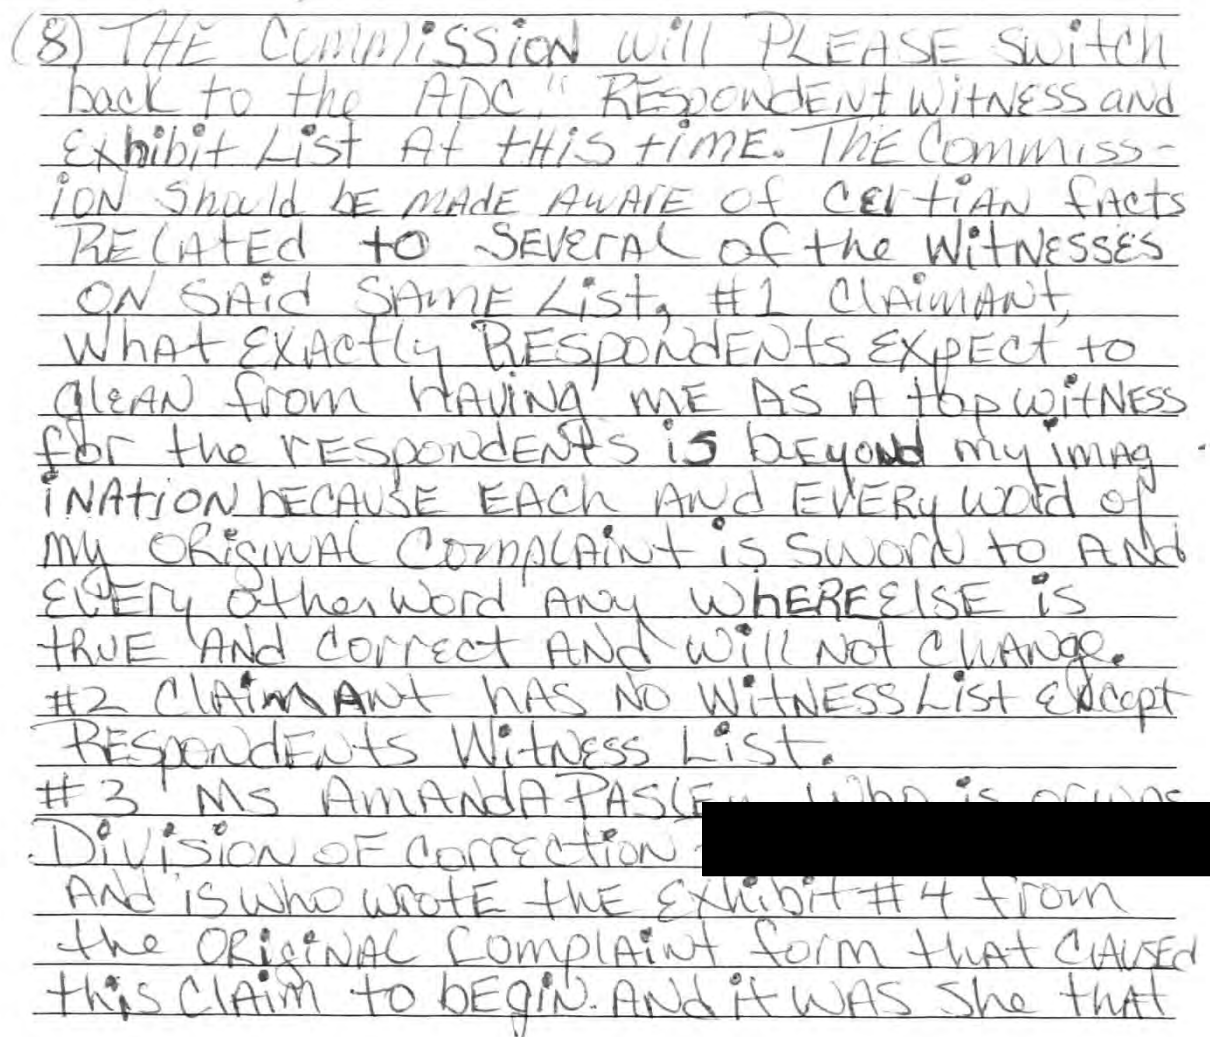 (8) THE COMMISSION will PLEASE Switch
back to the ADC" RESPONDENt WitNESS and
Exhibit List At tHiS timE. ThE Commiss-
iON Should bE MADE AWArE Of CErtiAN fActs
RELAtEd to SEVErAL of the WitNESSES
ON SAid SAME List, #1 ClAimANt,
WhAt EXActly RESpONdENts EXpECt to
glEAN from HAViNg mE AS A top witNESS
for the rESpondENts is bEyond my imag-
iNAtiON bECAUSE EACh ANd EVERy word of
my ORigiNAl ComplAiNt is Sworn to ANd
EVEry other word ANy WhEREElSE is
tRUE ANd CorrEct ANd Will Not ChANgE.
#2 ClAimANt hAS No WitNESS List Except
RESpONdENts WitNESS List.
#3 MS AmANdA PASLEy who is
DiViSiON OF CorrECtiON
ANd is who wrotE thE Exhibit #4 from
the ORigiNAL ComplAiNt form thAt CAUSEd
this ClAim to bEgiN. ANd it WAS She thAt